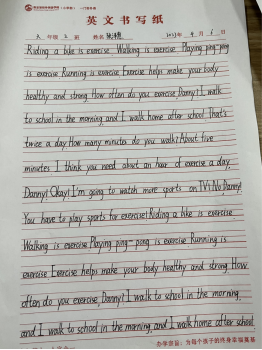 英文书写纸
六 年级 2 班 姓名 2023年 9月 1日
Riding a bike is exercise Walking is exercise Playing ping-pong
is exercise Running is exercise Exercise helps make your body
healthy and strong. How often do you exercise, Danny? I walk
to school in the morning, and I walk home after school. That's
twice a day. How many minutes do you walk? About five
minutes I think you need about an hour of exercise a day,
Danny! Okay! I'm going to watch more sports on TV! No, Danny!
You have to play sports for exercise! Riding a bike is exercise
Walking is exercise Playing ping-pong is exercise Running is
exercise Exercise helps make your body healthy and strong. How
often do you exercise, Danny? I walk to school in the morning,
and I walk to school in the morning, and I walk home after school.
办学宗旨：为每个孩子的终身幸福奠基